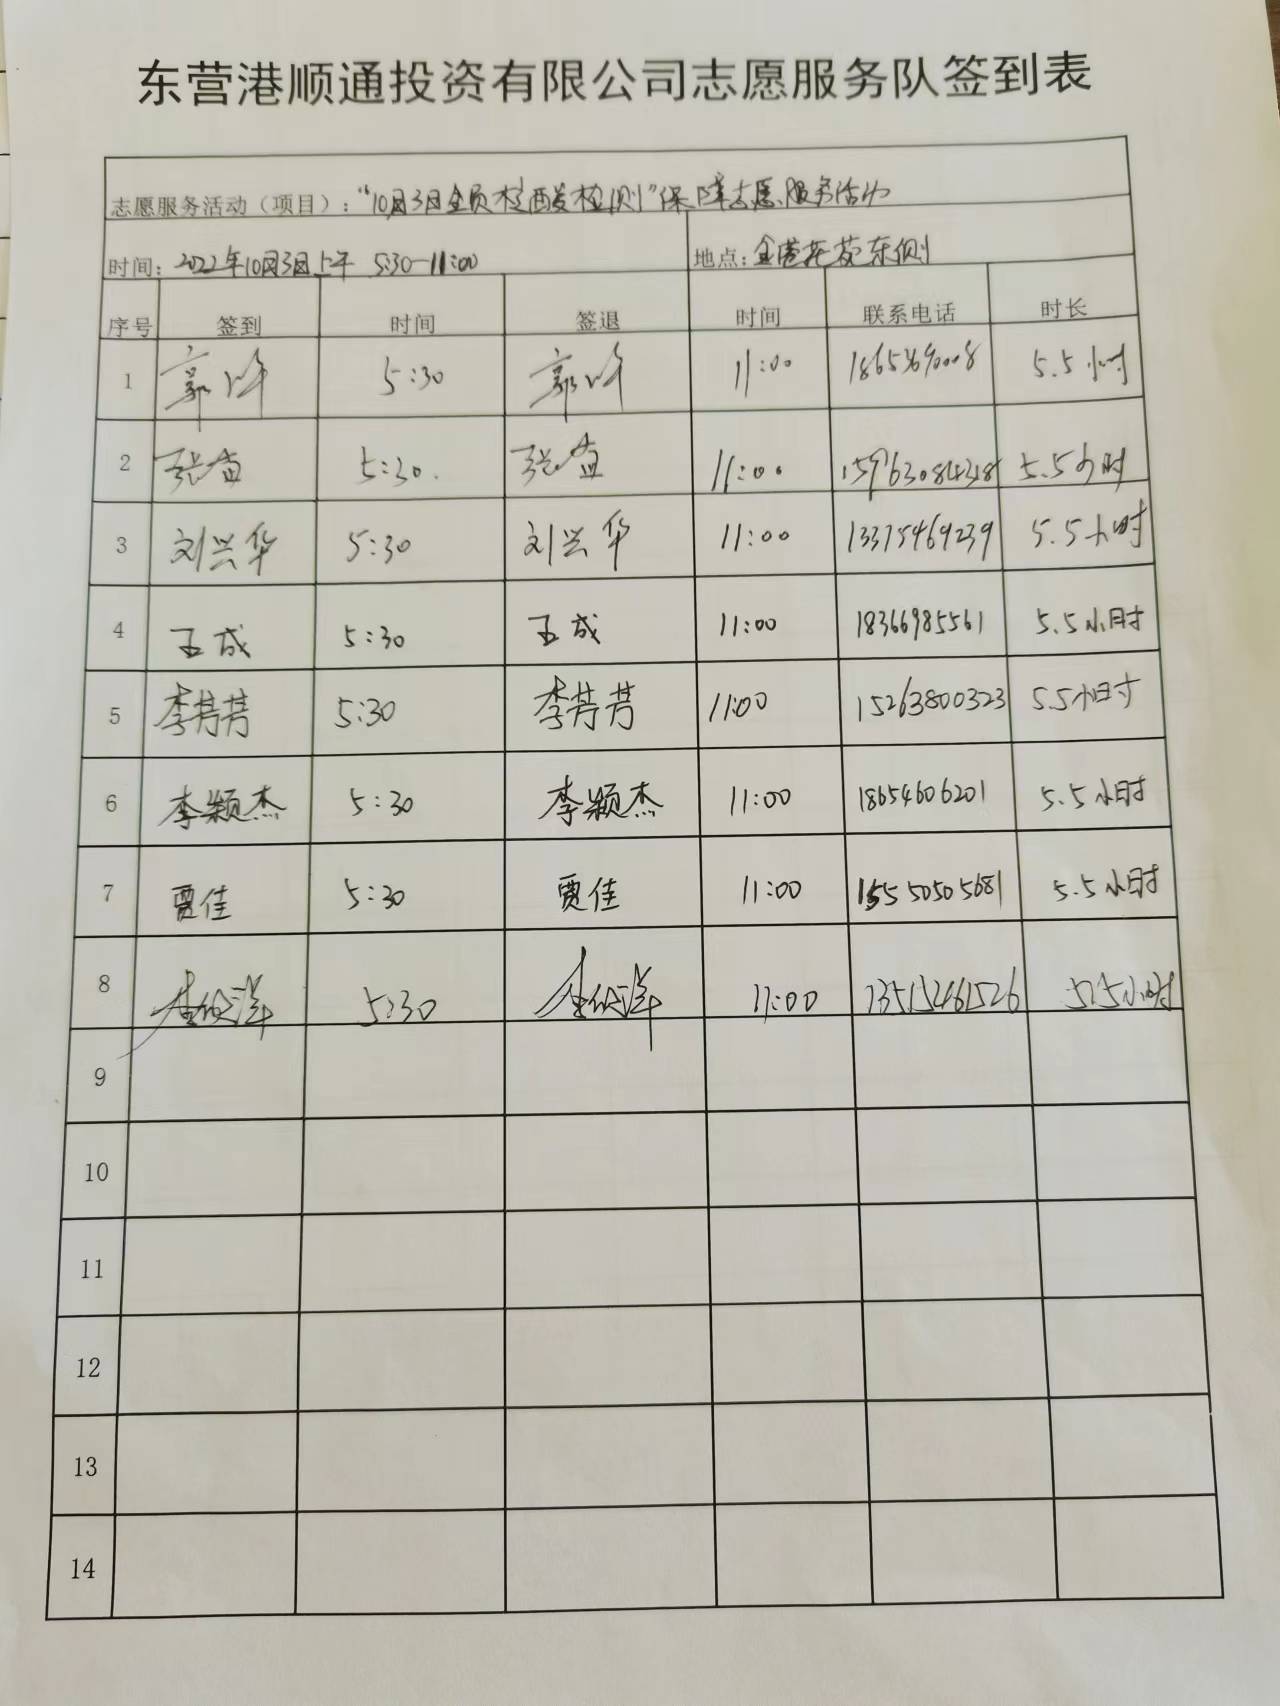 东营港顺通投资有限公司志愿服务队签到表
志愿服务活动（项目）：“10月3日全员核酸检测”保障志愿服务活动
时间：2022年10月3日上午 5:30-11:00 地点：金港花苑东侧
序号 签到 时间 签退 时间 联系电话 时长
1 郭 5:30 郭 11:00 5.5小时
2 张 5:30. 张 11:00 15963084318 5.5小时
3 刘兴华 5:30 刘兴华 11:00 13375469239 5.5小时
4 王成 5:30 王成 11:00 18366985561 5.5小时
5 李芳芳 5:30 李芳芳 11:00 15263800323 5.5小时
6 李颖杰 5:30 李颖杰 11:00 18654606201 5.5小时
7 贾佳 5:30 贾佳 11:00 15550505681 5.5小时
8 5:30 11:00 13515461526 5.5小时
9
10
11
12
13
14